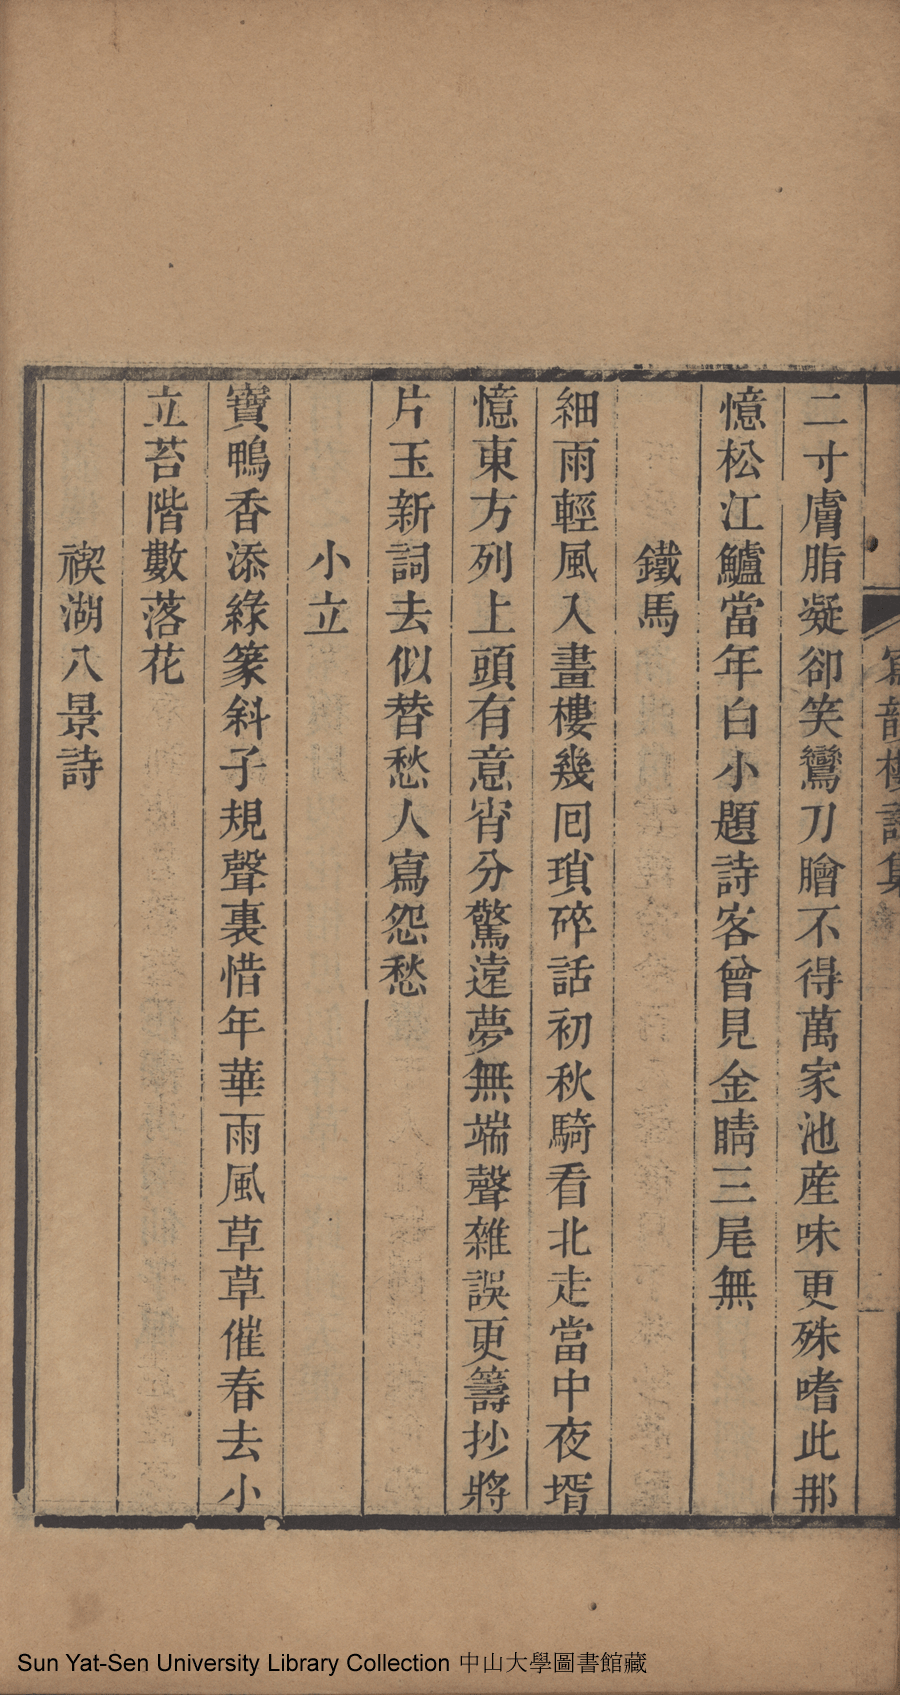 寫韵樓詩集
二寸膚脂凝卻笑鸞刀膾不得萬家池産味更殊嗜此那
憶松江鱸當年白小題詩客曾見金睛三尾無
鐵馬
細雨輕風入畫樓幾回瑣碎話初秋騎看北走當中夜壻
憶東方列上頭有意宵分驚遠夢無端聲雜誤更籌抄將
片玉新詞去似替愁人寫怨愁
小立
寶鴨香添綠篆斜子規聲裏惜年華雨風草草催春去小
立苔階數落花
禊湖八景詩
Sun Yat-Sen University Library Collection 中山大學圖書館藏